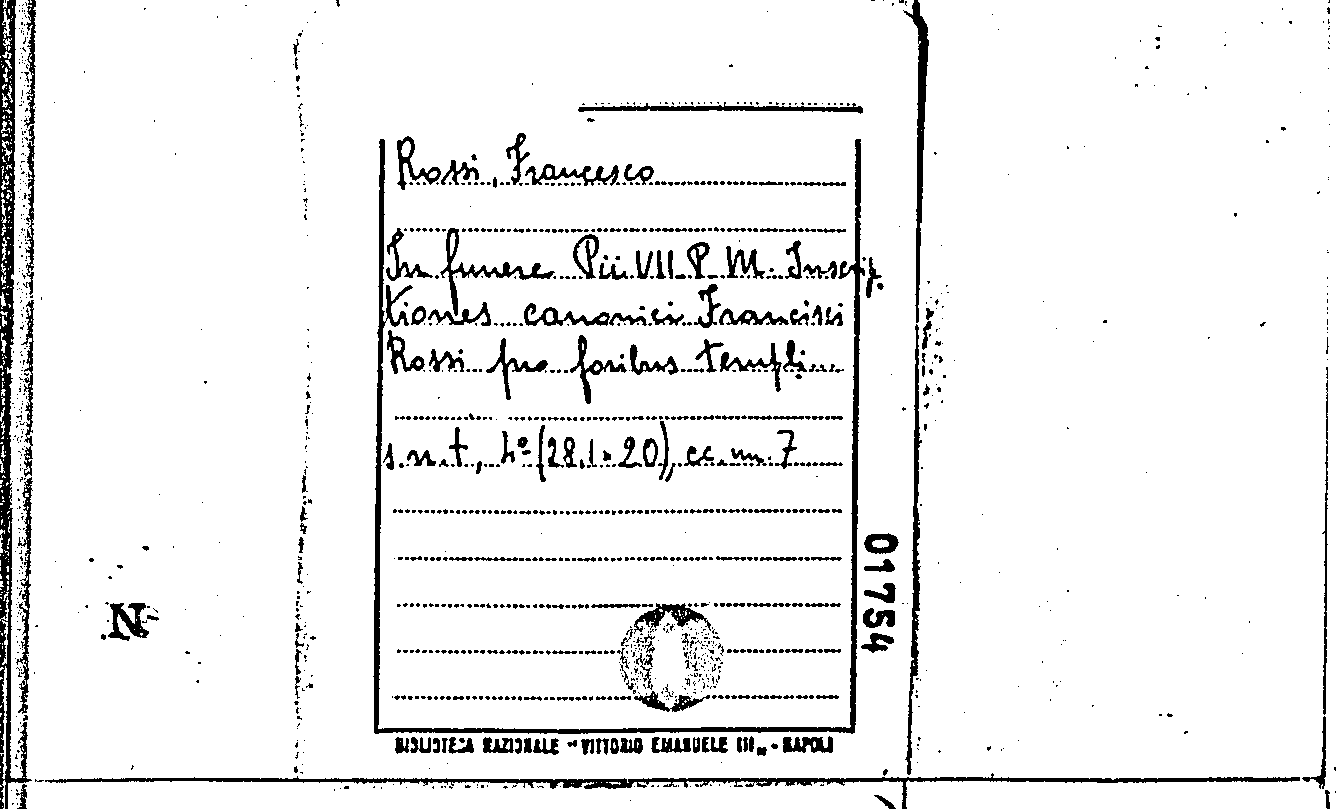 Rossi, Francesco
In funere Pii VII P. M. Inscrip
tiones canonici Francisci
Rossi pro foribus templi...
s.n.t., 4º (28,1 × 20), cc. nn. 7
01754
N
BIBLIOTECA NAZIONALE "VITTORIO EMANUELE III" - NAPOLI